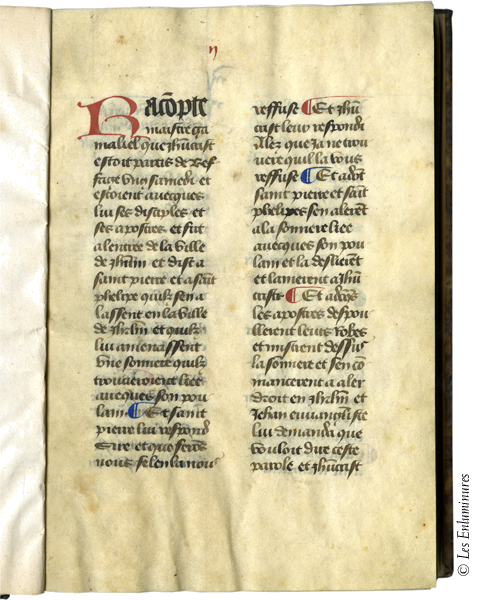 n
Racōpte
maistre ga
maliel que zhūcrist
estoit partis de Bef
faige vng samedi et
estoient auecques
lui ses disaples et
ses apostres et fut
a lentree de la ville
de zhrlm et dist a
saint pierre et a saint
phelipe quilz sen a
lassent en la ville
de zhrlm et quilz
lui amenassent
vne sonniere quilz
trouueroient liee
auecques son pou
lain ¶ Et saint
pierre lui respond
Sire et que ferōs
nous se len la nous
reffuse ¶ Et zhū
crist leur respondi
Alez que ja ne trou
uerez quil la vous
reffuse ¶ Et adōt
saint pierre et saīt
phelipes sen alerēt
a la sonniere liee
auecques son pou
lain et la deslierēt
et lamenerent a zhū
crist ¶ Et adōqs
les apostres despou
llerent leurs robes
et mistrent dessus
la sonniere et sen cō
mancerent a aler
droit en zhrlm et
zehan euuangliste
lui demanda que
vouloit dire ceste
parole et zhūcrist
© Les Enluminures